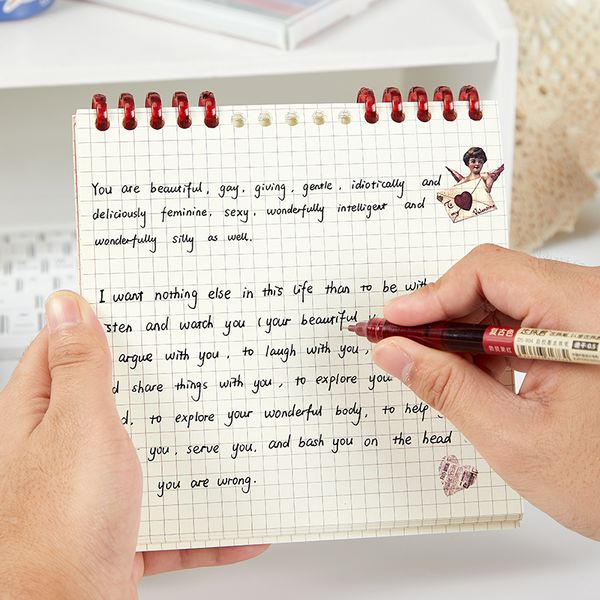 You are beautiful, gay, giving, gentle, idiotically and
deliciously feminine, sexy, wonderfully intelligent and
wonderfully silly as well.
I want nothing else in this life than to be with
and watch you (your beautiful
argue with you, to laugh with you,
share things with you, to explore
to explore your wonderful body, to help
you, serve you, and bash you on the head
you are wrong.
To
my